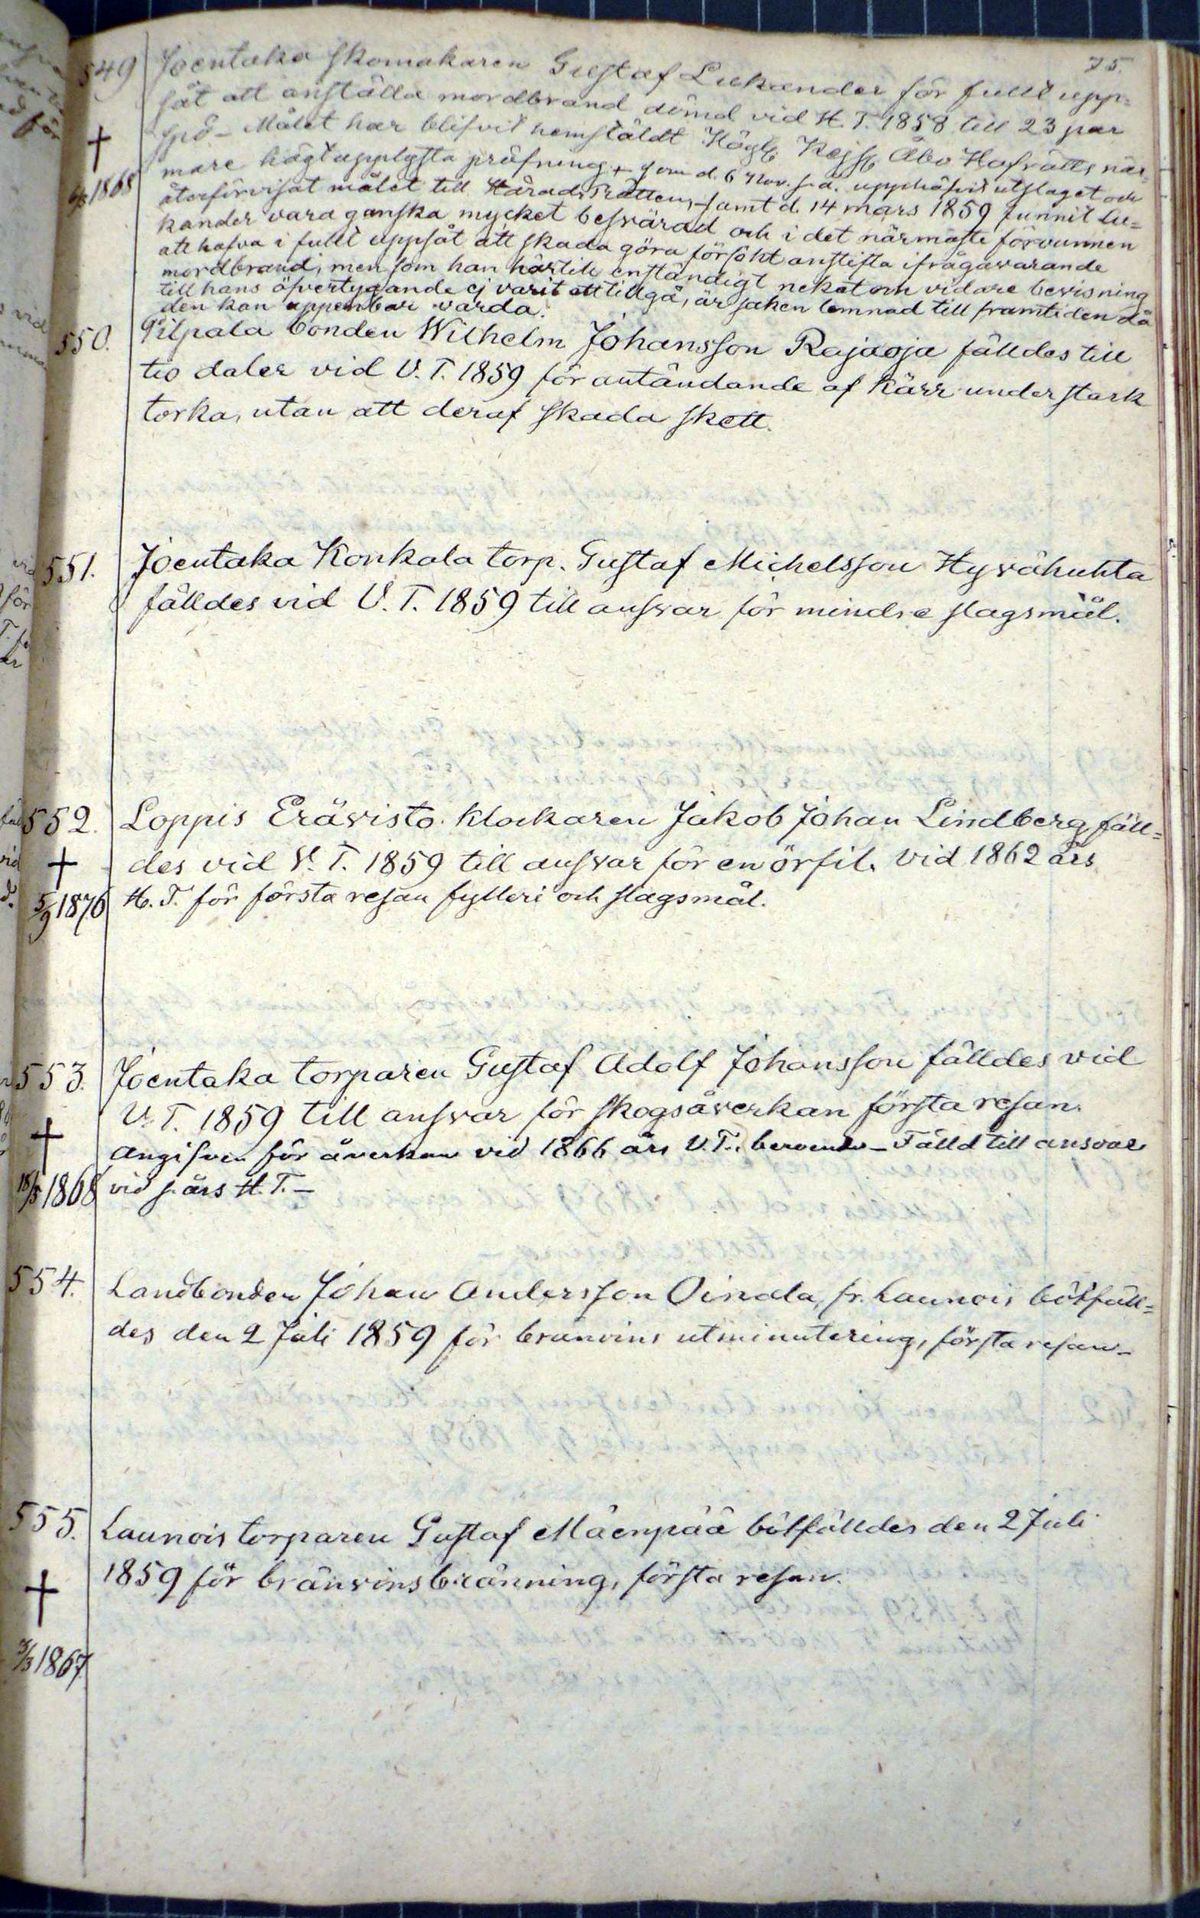 75.
549 Joentaka skomakaren Gustaf Lukander för fullt upp=
såt att anställa mordbrand dömd vid H. T. 1858 till 23 par
spö – Målet har blifvit hemstäldt Högl. Kejs. Åbo Hofrätts när-
† mare högtupplysta pröfning, + som d. 6 Nov. s. å. upphäfvit utslaget och
1868 återförvisat målet till HäradsRätten, samt d. 14 mars 1859 funnit Lu=
kander vara ganska mycket besvärad och i det närmaste förvunnen
att hafva i fullt uppsåt att skada göra försökt anstifta ifrågavarande
mordbrand, men som han härtill enständigt nekat och vidare bevisning
till hans öfvertygande ej varit att tillgå, är saken lemnad till framtiden då
den kan uppenbar varda.
550. Pilpala bonden Wilhelm Johansson Rajaoja fälldes till
tio daler vid V. T. 1859 för antändande af kärr under stark
torka, utan att deraf skada skett.
551. Joentaka Konkala torp. Gustaf Michelsson Hyvähuhta
fälldes vid V. T. 1859 till ansvar för mindre slagsmål.
552. Loppis Erävisto klockaren Jakob Johan Lindberg fäll=
† des vid V. T. 1859 till ansvar för en örfil. Vid 1862 års
5/9 1876 H. T. för första resan fylleri och slagsmål.
553. Joentaka torparen Gustaf Adolf Johansson fälldes vid
V. T. 1859 till ansvar för skogsåverkan första resan.
† Angifven för åverkan vid 1866 års V. T., beroende – Fälld till ansvar
18/5 1868 vid s. års H. T. –
554. Landbonden Johan Andersson Oinala, fr. Launois bötfäll=
des den 2 Juli 1859 för bränvins utminutering, första resan –
555. Launois torparen Gustaf Mäenpää bötfälldes den 2 Juli
† 1859 för bränvinsbränning, första resan.
/3 1867